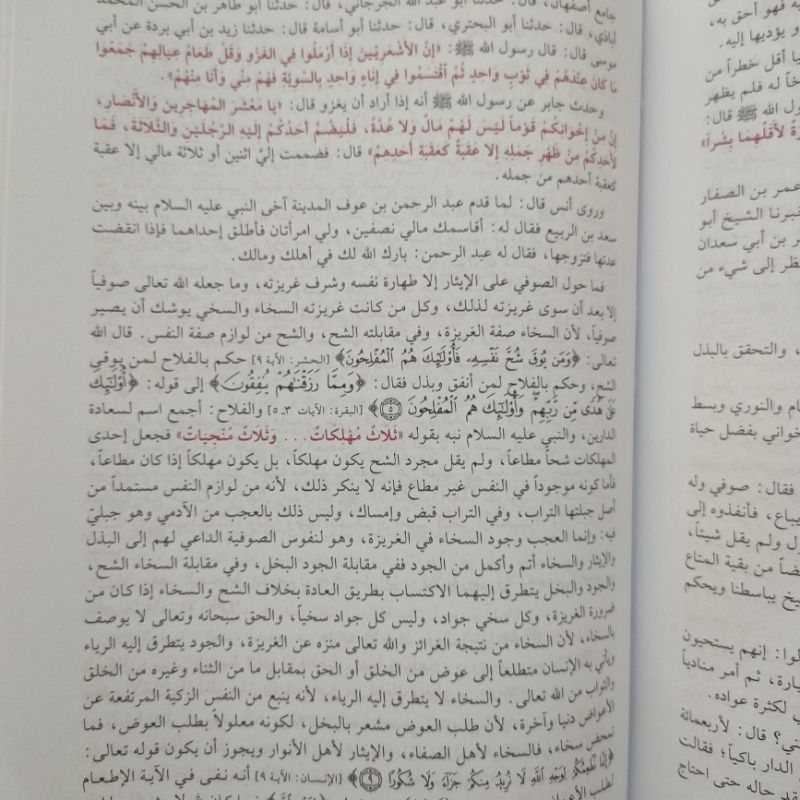 جامع أصفهان، قال: حدثنا أبو عبد الله الجرجاني، قال: حدثنا أبو طاهر بن الحسن المحمد
أباذي، قال: حدثنا أبو البحتري، قال: حدثنا أبو أسامة قال: حدثنا زيد بن أبي بردة عن أبي
موسى قال: قال رسول الله ﷺ: «إنَّ الأشْعَرِيِّينَ إذَا أَرْمَلُوا فِي الغَزْوِ وَقَلَّ طَعَامُ عِيالِهِمْ جَمَعُوا
مَا كَانَ عِنْدَهُمْ فِي ثَوْبٍ وَاحِدٍ ثُمَّ اقْتَسَمُوا فِي إنَاءٍ وَاحِدٍ بِالسَّوِيَّةِ فَهُمْ مِنِّي وَأَنَا مِنْهُمْ».
وحدث جابر عن رسول الله ﷺ أنه إذا أراد أن يغزو قال: «يا مَعْشَرَ المُهاجِرِينَ وَالأَنْصَارِ،
إنَّ مِنْ إخْوَانِكُمْ قَوْماً لَيْسَ لَهُمْ مَالٌ وَلا عُدَّةٌ، فَلْيَضُمَّ أَحَدُكُمْ إلَيْهِ الرَّجُلَيْنِ وَالثَّلاثَةَ، فَمَا
لأَحَدِكُمْ مِنْ ظَهْرِ جَمَلِهِ إلا عُقْبَةٌ كَعُقْبَةِ أَحَدِهِمْ» قال: فضممت إليّ اثنين أو ثلاثة مالي إلا عقبة
كعقبة أحدهم من جمله.
وروى أنس قال: لما قدم عبد الرحمن بن عوف المدينة آخى النبي عليه السلام بينه وبين
سعد بن الربيع فقال له: أقاسمك مالي نصفين، ولي امرأتان فأطلق إحداهما فإذا انقضت
عدتها فتزوجها، فقال له عبد الرحمن: بارك الله لك في أهلك ومالك.
فما حول الصوفي على الإيثار إلا طهارة نفسه وشرف غريزته، وما جعله الله تعالى صوفياً
إلا بعد أن سوى غريزته لذلك، وكل من كانت غريزته السخاء والسخي يوشك أن يصير
صوفياً، لأن السخاء صفة الغريزة، وفي مقابلته الشح، والشح من لوازم صفة النفس. قال الله
تعالى: ﴿وَمَن يُوقَ شُحَّ نَفْسِهِۦ فَأُوْلَٰٓئِكَ هُمُ ٱلْمُفْلِحُونَ﴾ [الحشر: الآية ٩] حكم بالفلاح لمن يوقى
الشح، وحكم بالفلاح لمن أنفق وبذل فقال: ﴿وَمِمَّا رَزَقْنَٰهُمْ يُنفِقُونَ﴾ إلى قوله: ﴿أُوْلَٰٓئِكَ
عَلَىٰ هُدًى مِّن رَّبِّهِمْ وَأُوْلَٰٓئِكَ هُمُ ٱلْمُفْلِحُونَ ٥﴾ [البقرة: الآيات ٣ـ ٥] والفلاح: أجمع اسم لسعادة
الدارين، والنبي عليه السلام نبه بقوله «ثَلاثٌ مُهْلِكَاتٌ... وَثَلاثٌ مُنْجِيَاتٌ» فجعل إحدى
المهلكات شحاً مطاعاً، ولم يقل مجرد الشح يكون مهلكاً، بل يكون مهلكاً إذا كان مطاعاً،
فأما كونه موجوداً في النفس غير مطاع فإنه لا ينكر ذلك، لأنه من لوازم النفس مستمداً من
أصل جبلتها التراب، وفي التراب قبض وإمساك، وليس ذلك بالعجب من الآدمي وهو جبليّ
فيه: وإنما العجب وجود السخاء في الغريزة، وهو لنفوس الصوفية الداعي لهم إلى البذل
والإيثار والسخاء أتم وأكمل من الجود ففي مقابلة الجود البخل، وفي مقابلة السخاء الشح،
والجود والبخل يتطرق إليهما الاكتساب بطريق العادة بخلاف الشح والسخاء إذا كان من
ضرورة الغريزة، وكل سخي جواد، وليس كل جواد سخياً، والحق سبحانه وتعالى لا يوصف
بالسخاء، لأن السخاء من نتيجة الغرائز والله تعالى منزه عن الغريزة، والجود يتطرق إليه الرياء
ويأتي به الإنسان متطلعاً إلى عوض من الخلق أو الحق بمقابل ما من الثناء وغيره من الخلق
والثواب من الله تعالى. والسخاء لا يتطرق إليه الرياء، لأنه ينبع من النفس الزكية المرتفعة عن
الأعواض دنيا وآخرة، لأن طلب العوض مشعر بالبخل، لكونه معلولاً بطلب العوض، فما
تمحض سخاء، فالسخاء لأهل الصفاء، والإيثار لأهل الأنوار ويجوز أن يكون قوله تعالى:
﴿إِنَّمَا نُطْعِمُكُمْ لِوَجْهِ ٱللَّهِ لَا نُرِيدُ مِنكُمْ جَزَآءً وَلَا شُكُورًا ٩﴾ [الإنسان: الآية ٩] أنه نفى في الآية الإطعام
لطلب الأعواض
به فهو أحق به،
و يؤديها إليه.
يا أقل خطراً من
خاً له فلم يظهر
ول الله ﷺ قال:
لأَقَلِّهِمَا بِشْراً»
عمر بن الصفار
خبرنا الشيخ أبو
ر بن أبي سعدان
نظر إلى شيء من
، والتحقق بالبذل
ام والنوري وبسط
خواني بفضل حياة
فقال: صوفي وله
يباع، فأنفذوه إلى
ل ولم يقل شيئاً،
ضاً من بقية المتاع
يخ يباسطنا ويحكم
لوا: إنهم يستحيون
بارة، ثم أمر منادياً
ي لكثرة عواده.
ني؟ قال: لأربعمائة
الدار باكياً؛ فقالت
قد حاله حتى احتاج